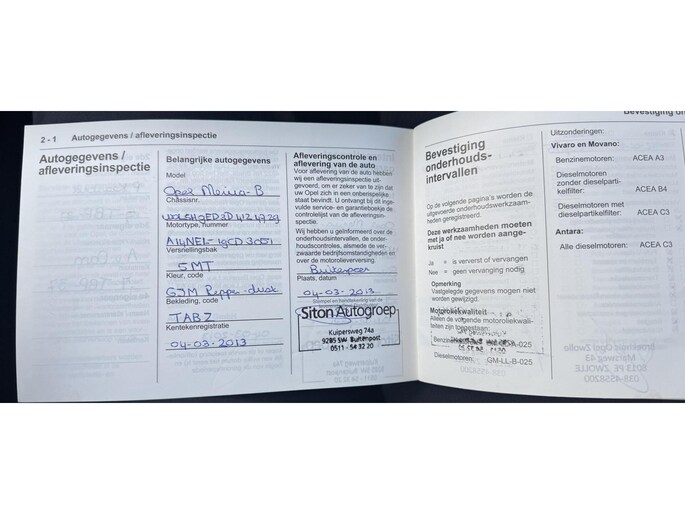 2 - 1 Autogegevens / afleveringsinspectie
Autogegevens /
afleveringsinspectie
Belangrijke autogegevens
Model
Opel Meriva-B
Chassisnr.
Motortype, nummer
A14NEL-
Versnellingsbak
5MT
Kleur, code
GJM Pepper-dust
Bekleding, code
TABZ
Kentekenregistratie
04-03-2013
Afleveringscontrole en
aflevering van de auto
Voor aflevering van de auto hebben
wij een afleveringsinspectie uit-
gevoerd, om er zeker van te zijn dat
uw Opel zich in een onberispelijke
staat bevindt. U ontvangt bij dit inge-
vulde service- en garantieboekje de
controlelijst van de afleveringsin-
spectie.
Wij hebben u geïnformeerd over de
onderhoudsintervallen, de onder-
houdscontroles, alsmede de ver-
zwaarde bedrijfsomstandigheden en
over de motorolieverversing.
Buitenpost
Plaats, datum
04-03-2013
Stempel en handtekening van de
Siton Autogroep
Kuipersweg 74a
9285 SW Buitenpost
0511 - 54 32 20
Bevestiging
onderhouds-
intervallen
Op de volgende pagina's worden de
uitgevoerde onderhoudswerkzaam-
heden geregistreerd.
Deze werkzaamheden moeten
met ja of nee worden aange-
kruist
Ja = is ververst of vervangen
Nee = geen vervanging nodig
Opmerking
Vastgelegde gegevens mogen niet
worden gewijzigd.
Motoroliekwaliteit
Alleen de volgende motoroliekwali-
teiten zijn toegestaan:
Dieselmotoren: GM-LL-B-025
Uitzonderingen:
Vivaro en Movano:
Benzinemotoren: ACEA A3
Dieselmotoren
zonder dieselparti-
kelfilter: ACEA B4
Dieselmotoren met
dieselpartikelfilter: ACEA C3
Antara:
Alle dieselmotoren: ACEA C3